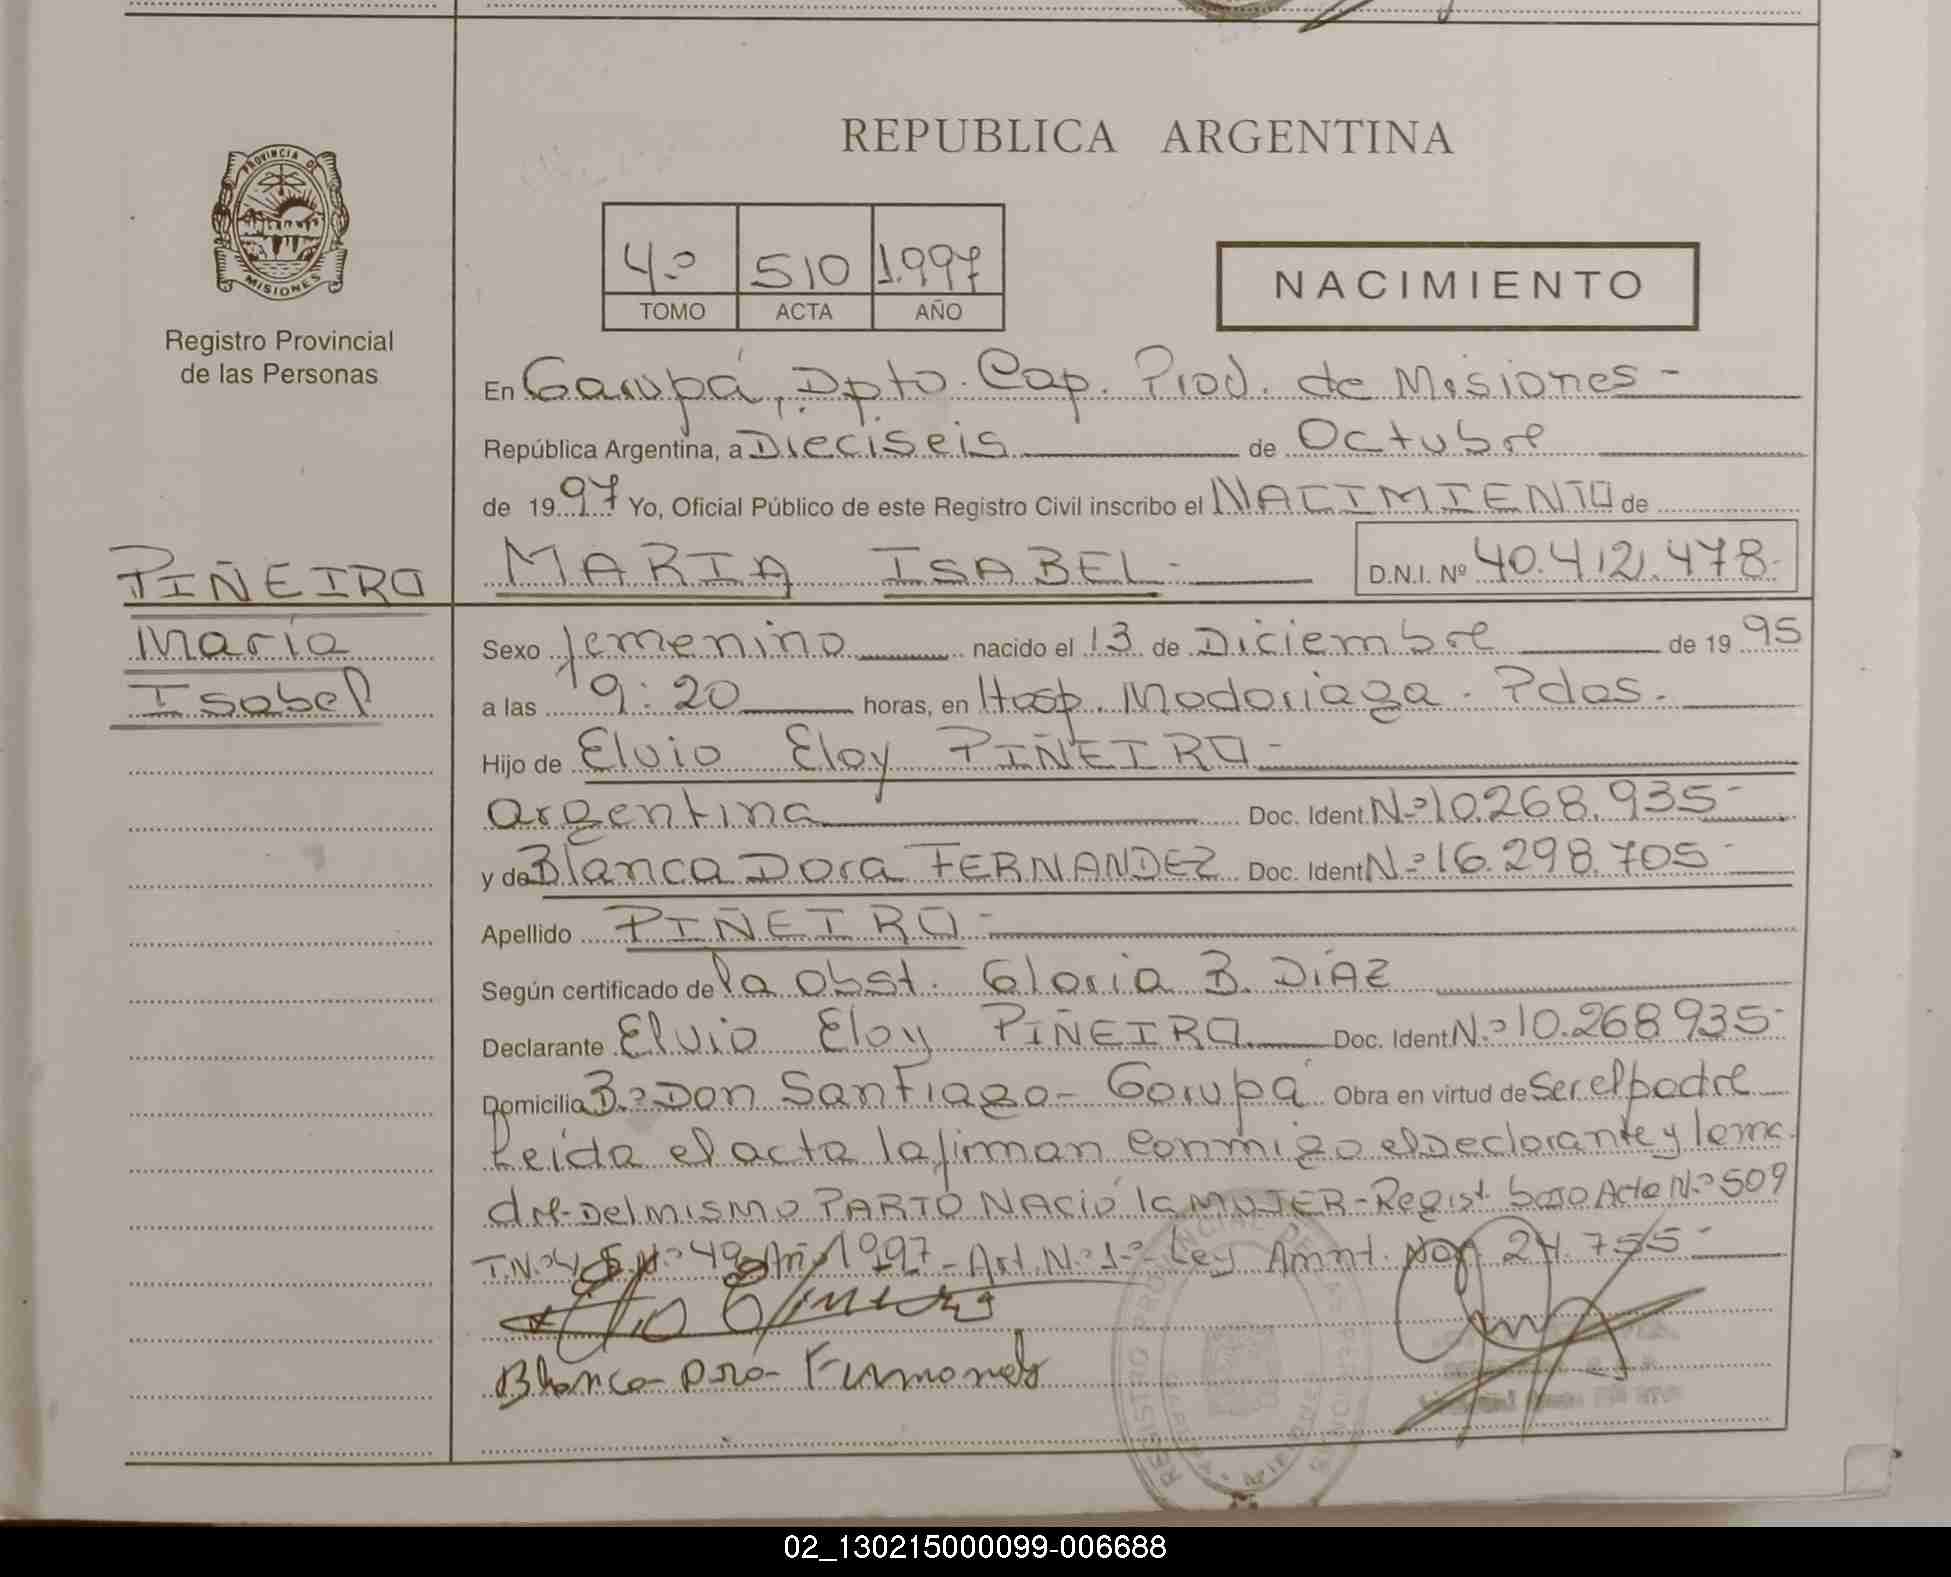 REPUBLICA ARGENTINA
PROVINCIA DE
MISIONES
Registro Provincial
de las Personas
4º 510 1.997
TOMO ACTA AÑO
NACIMIENTO
En Garupá, Dpto. Cap. Prov. de Misiones -
República Argentina, a Dieciseis de Octubre
de 1997 Yo, Oficial Público de este Registro Civil inscribo el NACIMIENTO de
PIÑEIRO
María
Isabel
MARIA ISABEL - D.N.I. Nº 40.412.478-
Sexo femenino nacido el 13 de Diciembre de 1995
a las 9:20 horas, en Hosp. Madariaga. Pdas.
Hijo de Elvio Eloy PIÑEIRO -
argentina Doc. Ident Nº 10.268.935-
y de Blanca Dora FERNANDEZ Doc. Ident Nº 16.298.705-
Apellido PIÑEIRO -
Según certificado de la Obst. Gloria B. DíAZ
Declarante Elvio Eloy PIÑEIRO. Doc. Ident Nº 10.268.935-
Domicilia Bº Don Santiago - Garupá Obra en virtud de Ser el padre
Leida el acta la firman conmigo el Declarante y la ma-
dre - Del mismo PARTO NACIÓ la MUJER - Regist. bajo Acta Nº 509
T. Nº 4 Año 1997 - Art. Nº 1º - Ley Amnt. Nº 24.755-
Blanca Dora Fernandez
REGISTRO PROVINCIAL DE LAS PERSONAS
02_130215000099-006688